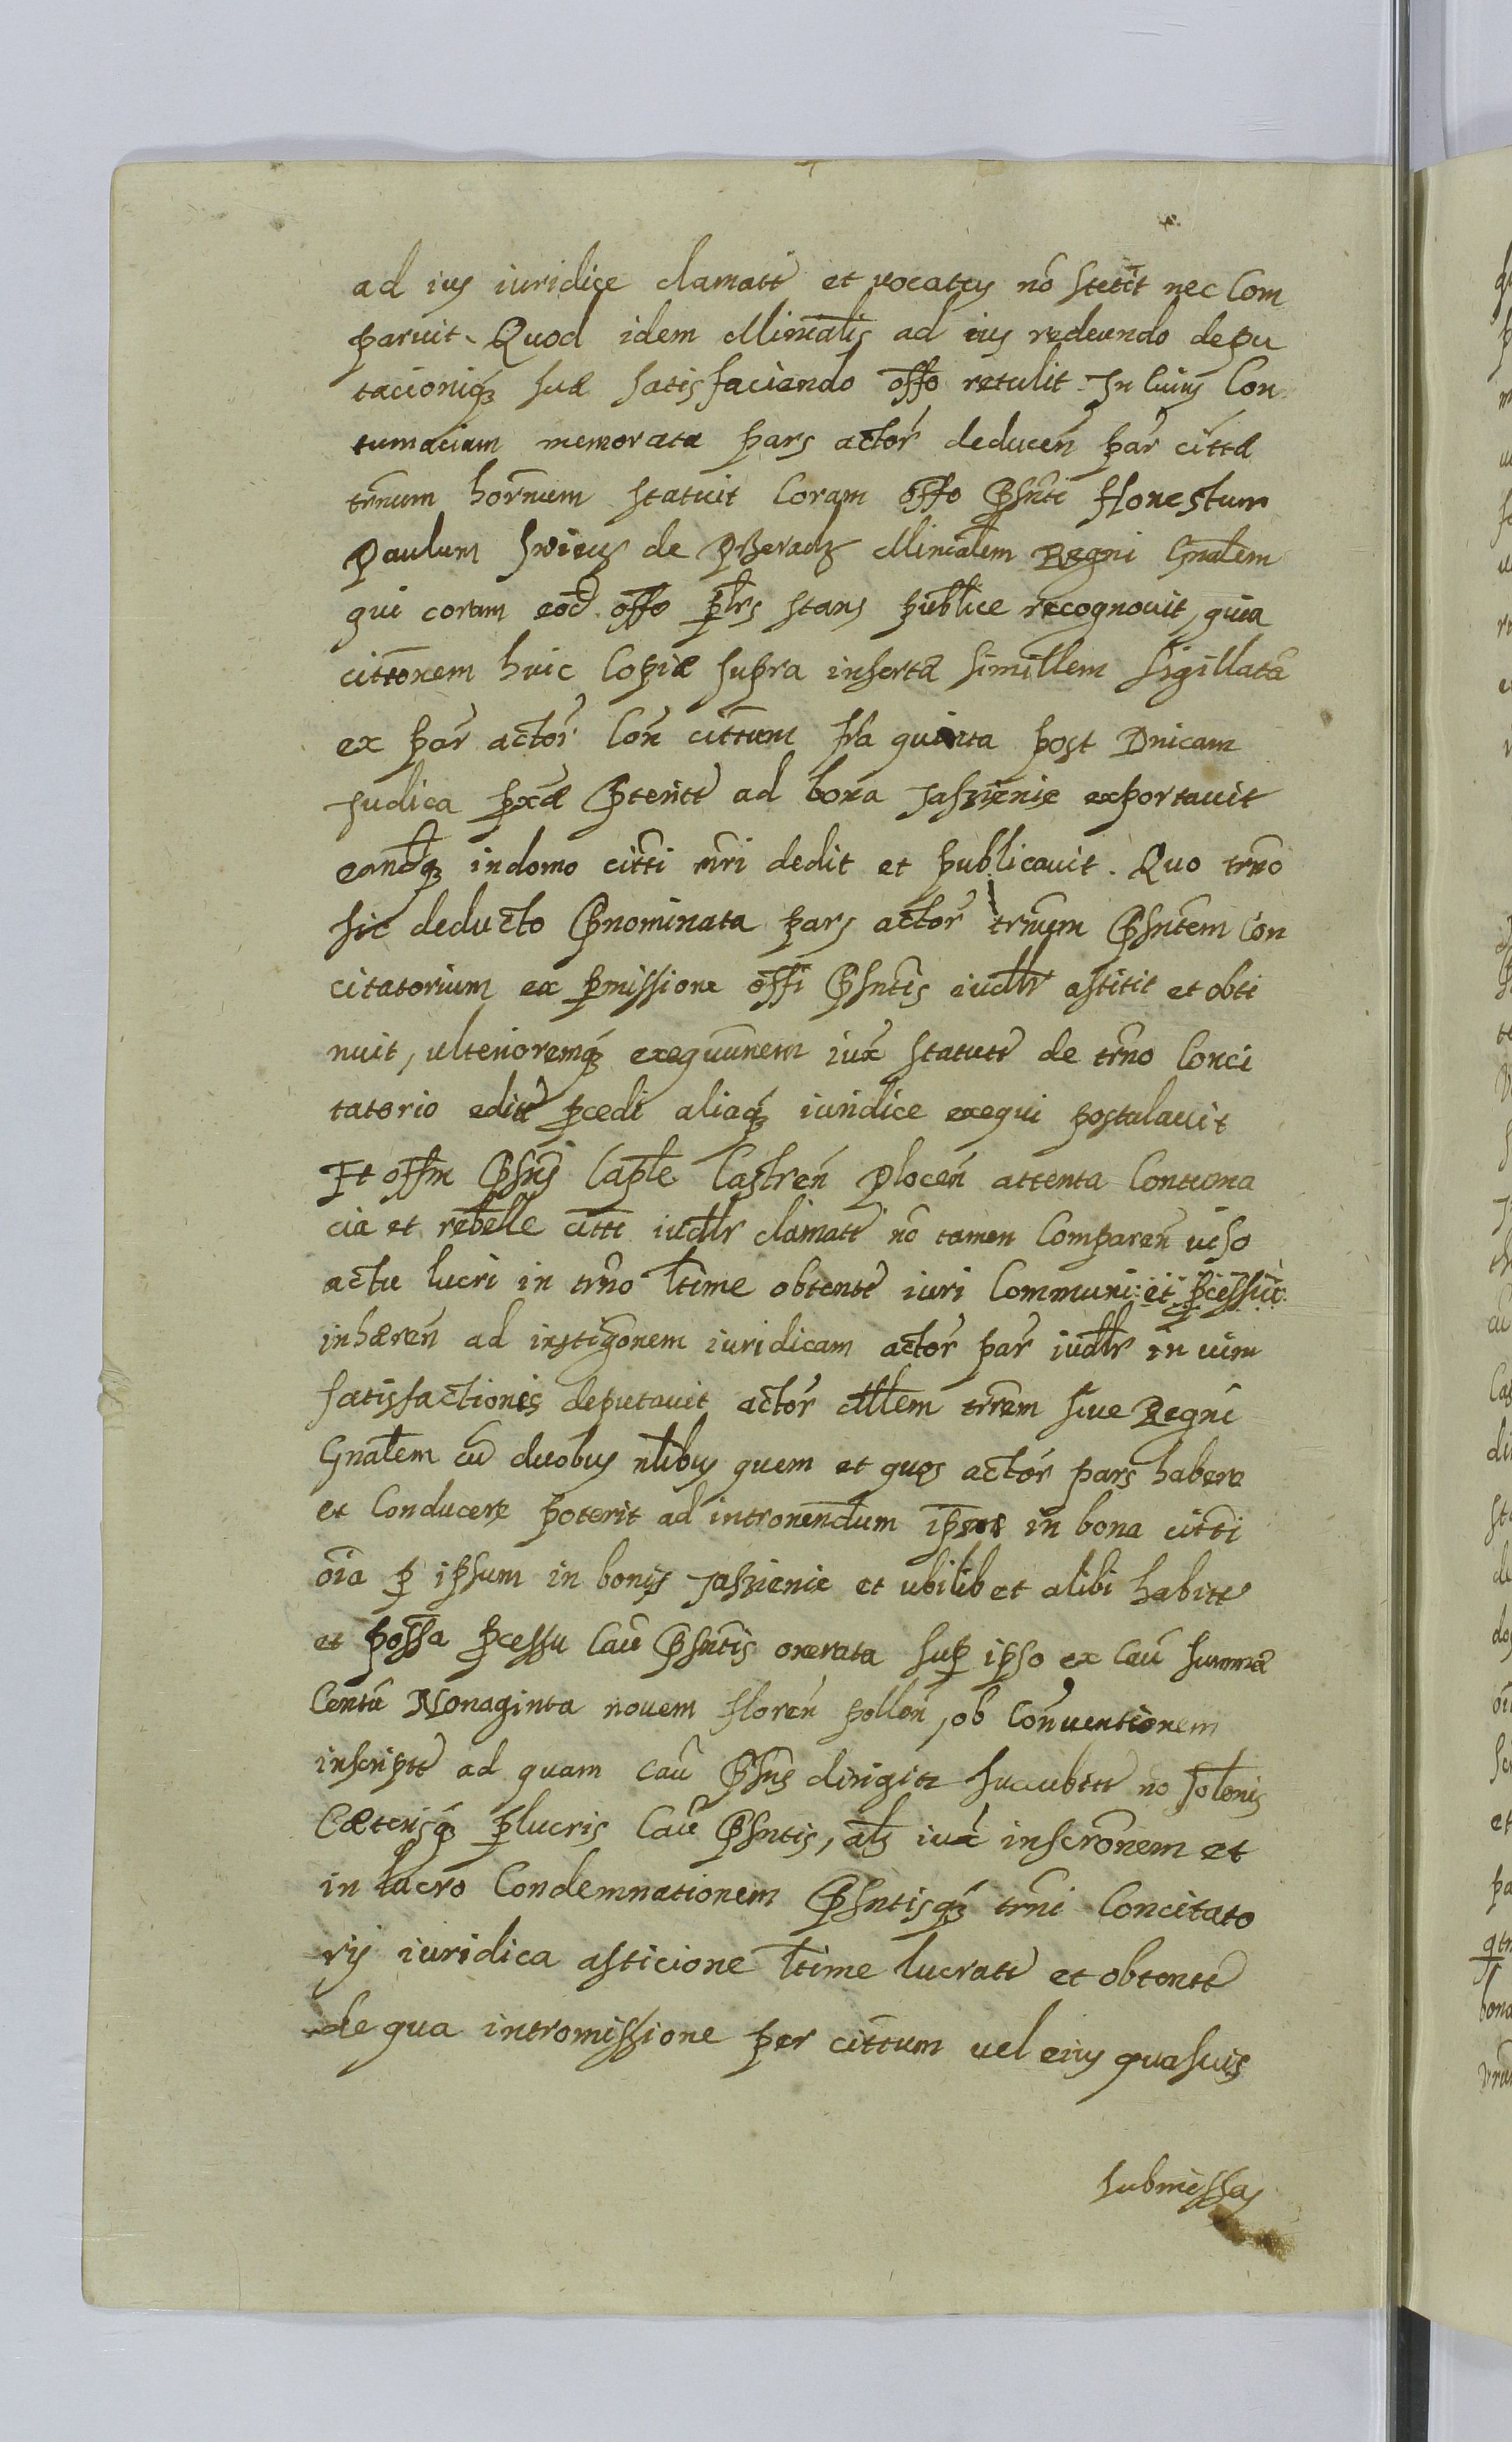 ad ius iuridice clamatt et vocatus nō stetit nec Com
paruit. Quod idem Minĩalis ad ius redeundo depu
tacioniq; suæ satisfaciendo offo retulit. In Cuius Con
tumaciam memorata pars actor̃ deducen̄ par̃ cittæ
trnum hornum statuit Coram offo Pñti Honestum
Paulum de Minĩalem Regni Gnãlem
qui coram eod offo pſrs stans publice recognouit, quia
cittõnem huic Copiæ supra insertæ simillem sigillatã
ex par̃ actor̃ Con̄ cittum fr̃a quinta post Dnicam
Iudica pxæ Ptentt ad bona Jaszienie exportauit
eandq; in domo citti mri dedit et publicauit. Quo trñ̃o
sic deducto Pnominata pars actor̃ trnum Psntem Con
citatorium ex pmissione offi Psntis iudlr astitit et obti
nuit, ulterioremq; exequũnem iux̃ statutt de trñ̃o Conci
tatorio editt pcedi aliaq; iuridice exequi postulauit
Et offm Psns Caple Castren̄ Plocen̄ attenta Contuma
cia et rebelle citti iudlr clamatt nō tamen Comparen̄ uiso
actu lucri in trñ̃o ltime obtentt iuri Communi et pcessui
inhæren̄ ad instigõnem iuridicam actor̃ par̃ iudlr in uim
satisfactionis deputauit actor̃ Mlem trrem siue Regni
Gnãlem cũ duobus nlibus quem et quos actor̃ pars habere
et Conducere poterit ad intronendum ipsos in bona citti
oĩa p ipsum in bonis Jaszienie et ubilibet alibi habitt
et possa pcessu Cau Psntis onerata sup ipso ex Cau summã
Centũ Nonaginta nouem floren̄ pollon̄, ob Conuentionem
inscriptt ad quam cau Psns dirigitr succubitt no solenis
Cæterisq; plucris Cau Psntis, als iux̃ inscrõnem et
in lucro Condemnationem Psntisq; trñi Concitato
rij iuridica asticione ltime lucratt et obtentt
de qua intromissione per cittum uel eius quasuis
submissas